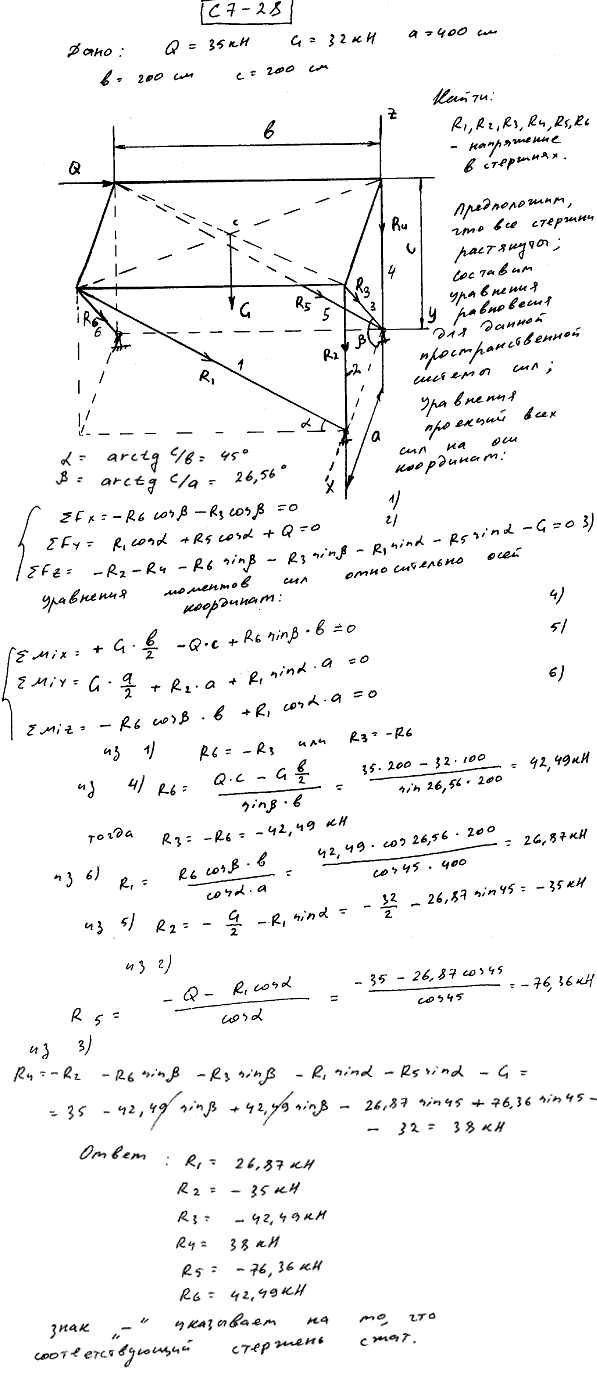 С7-28
Дано: Q = 35кН G = 32кН a = 400 см
в = 200 см c = 200 см
Найти:
R1, R2, R3, R4, R5, R6
- напряжение
в стержнях.
Предположим,
что все стержни
растянуты;
составим
уравнения
равновесия
для данной
пространственной
системы сил;
уравнения
проекций всех
сил на оси
координат:
z
в
Q
R4
c
c
4
R3
3
R5
5
y
G
R6
6
R2
2
β
R1
1
a
α
x
α = arctg c/в = 45°
β = arctg c/a = 26,56°
ΣFx = -R6 cosβ - R3 cosβ = 0 1)
ΣFy = R1 cosα + R5 cosα + Q = 0 2)
ΣFz = -R2 - R4 - R6 sinβ - R3 sinβ - R1 sinα - R5 sinα - G = 0 3)
уравнения моментов сил относительно осей
координат:
ΣMix = + G · в/2 - Q·c + R6 sinβ · в = 0 4)
ΣMiy = G · a/2 + R2 · a + R1 sinα · a = 0 5)
ΣMiz = - R6 cosβ · в + R1 cosα · a = 0 6)
из 1) R6 = -R3 или R3 = -R6
из 4) R6 = (Q·c - G в/2)/(sinβ · в) = (35·200 - 32·100)/(sin 26,56 · 200) = 42,49кН
тогда R3 = -R6 = -42,49 кН
из 6) R1 = (R6 cosβ · в)/(cosα · a) = (42,49 · cos 26,56 · 200)/(cos45 · 400) = 26,87кН
из 5) R2 = - G/2 - R1 sinα = - 32/2 - 26,87 sin45 = -35кН
из 2)
R5 = (-Q - R1 cosα)/cosα = (-35 - 26,87 cos45)/cos45 = -76,36кН
из 3)
R4 = -R2 - R6 sinβ - R3 sinβ - R1 sinα - R5 sinα - G =
= 35 - 42,49 sinβ + 42,49 sinβ - 26,87 sin45 + 76,36 sin45 -
- 32 = 38 кН
Ответ: R1 = 26,87кН
R2 = -35кН
R3 = -42,49кН
R4 = 38 кН
R5 = -76,36 кН
R6 = 42,49кН
знак „-“ указывает на то, что
соответствующий стержень сжат.